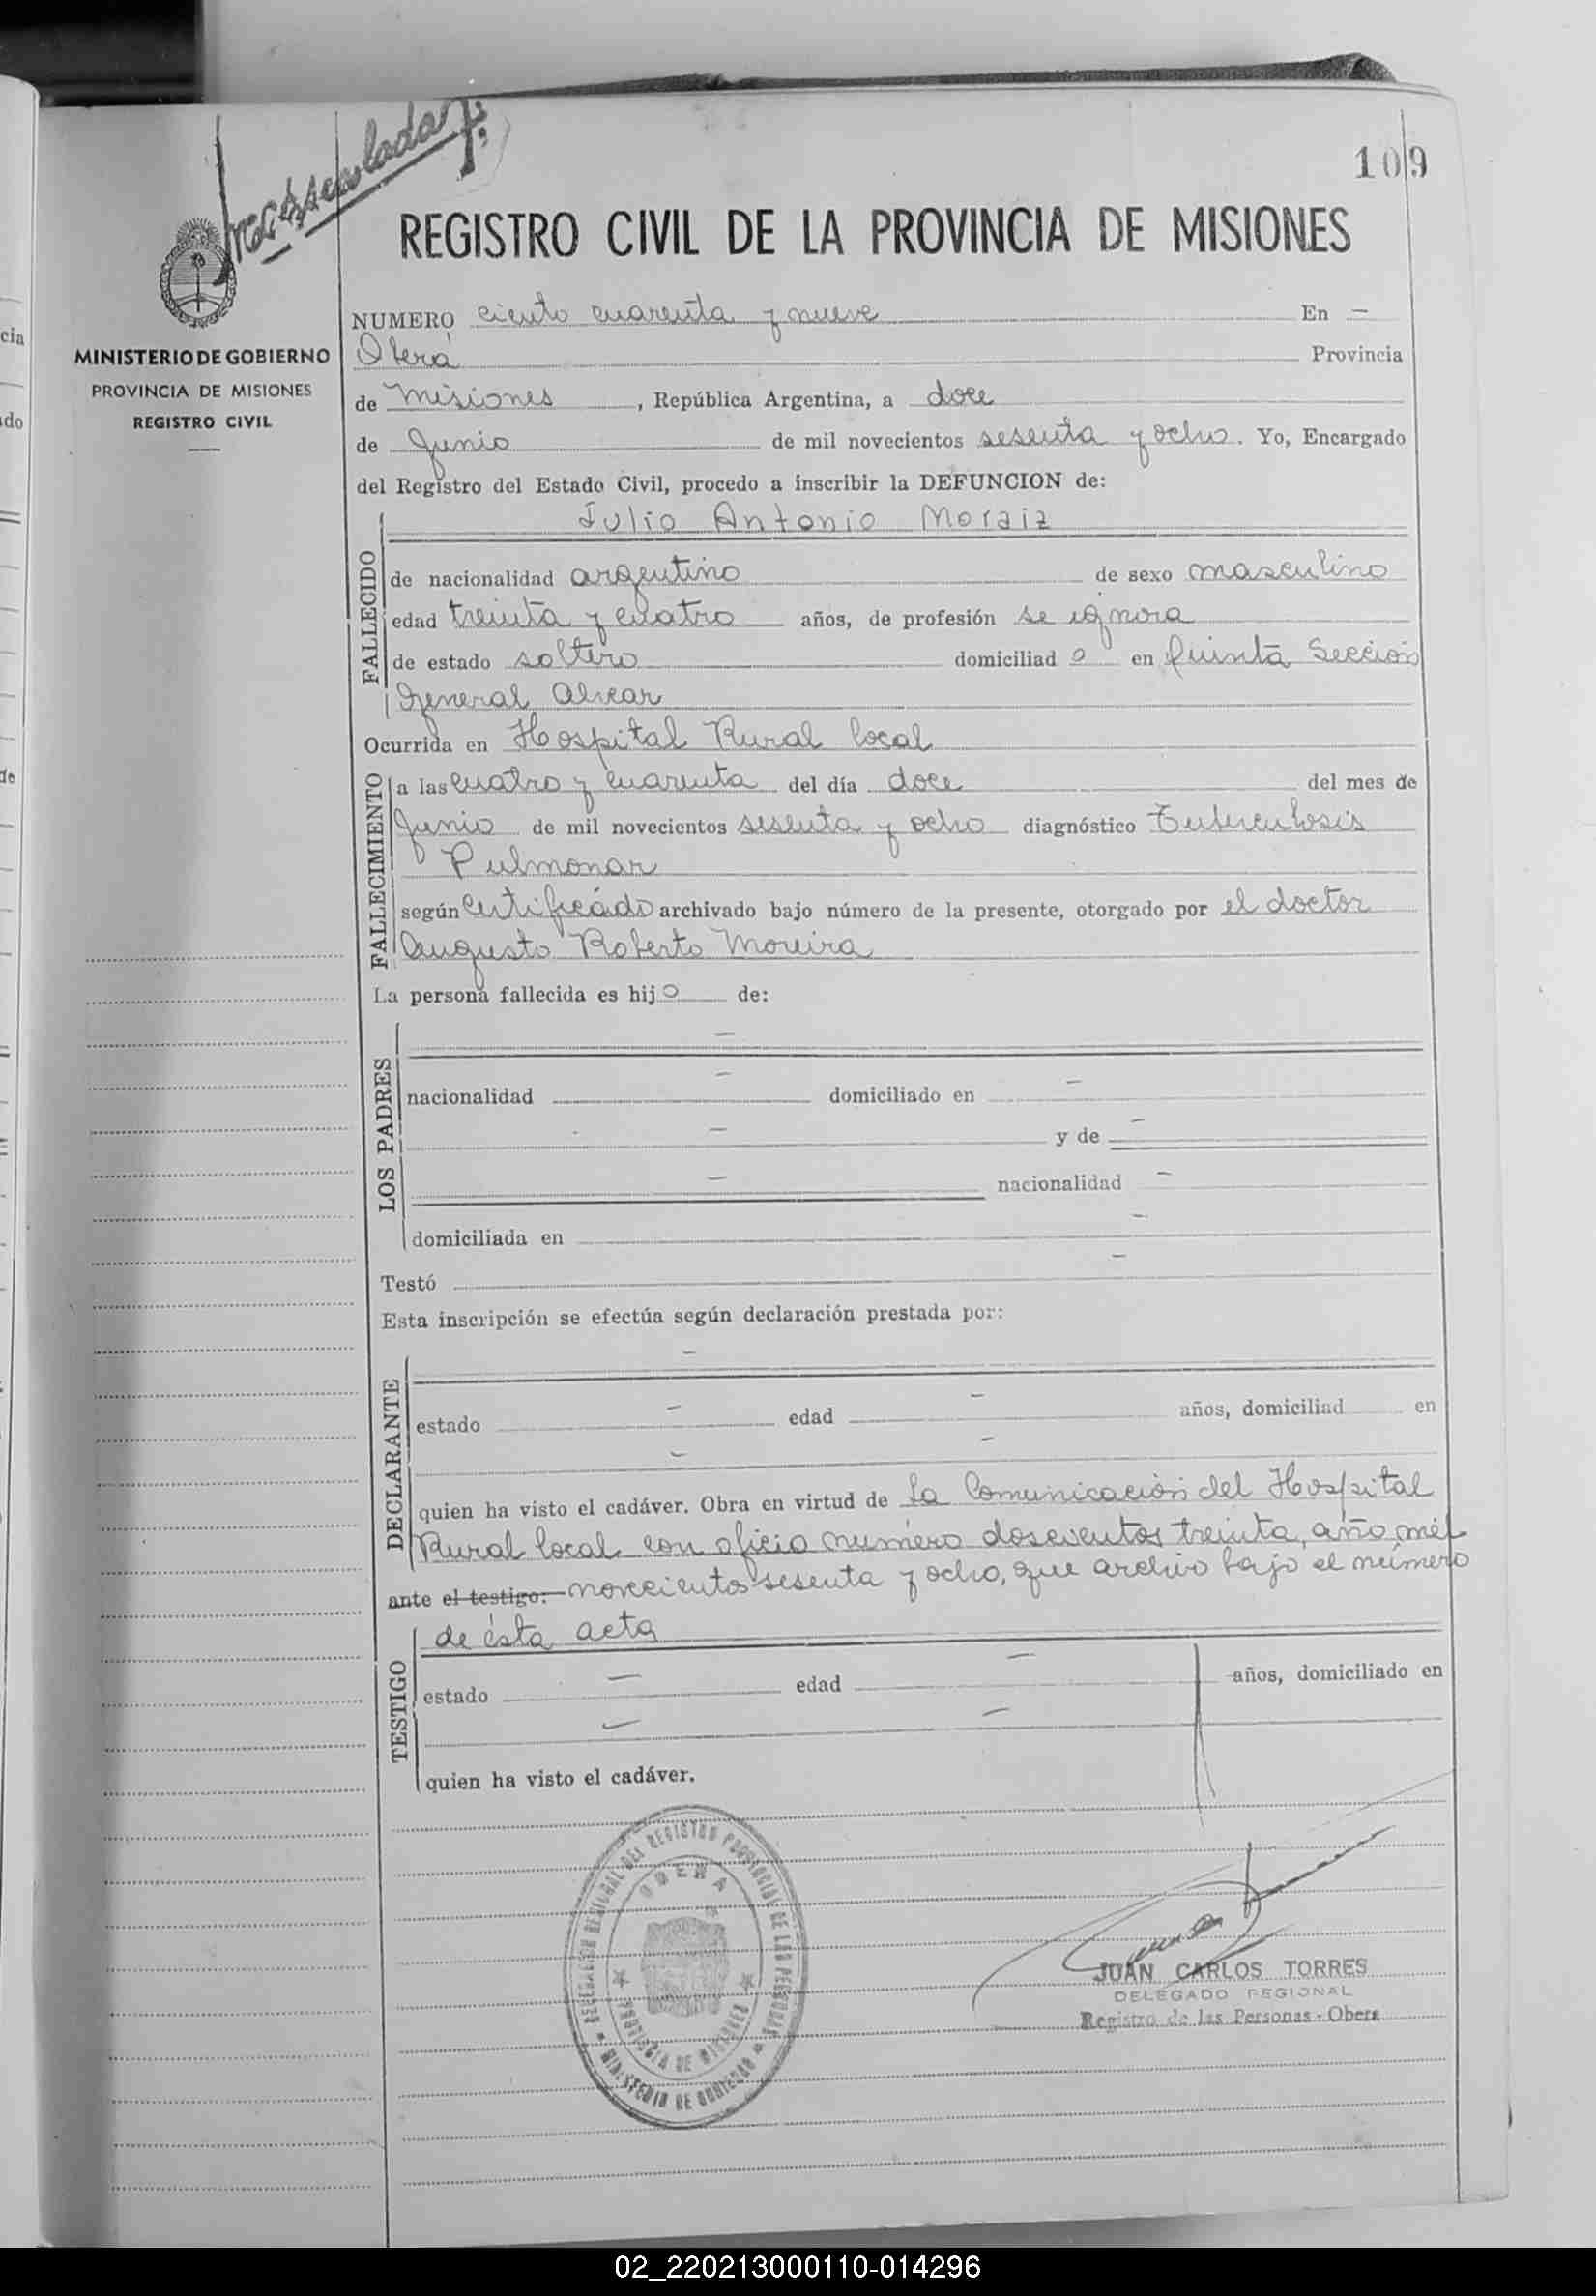 109
REGISTRO CIVIL DE LA PROVINCIA DE MISIONES
MINISTERIO DE GOBIERNO
PROVINCIA DE MISIONES
REGISTRO CIVIL
NUMERO ciento cuarenta y nueve En —
Oberá Provincia
de Misiones, República Argentina, a doce
de Junio de mil novecientos sesenta y ocho. Yo, Encargado
del Registro del Estado Civil, procedo a inscribir la DEFUNCION de:
Julio Antonio Moraiz
FALLECIDO
de nacionalidad argentino de sexo masculino
edad treinta y cuatro años, de profesión se ignora
de estado soltero domiciliado en Quinta Sección
General Alvear
Ocurrida en Hospital Rural local
FALLECIMIENTO
a las cuatro y cuarenta del día doce del mes de
Junio de mil novecientos sesenta y ocho diagnóstico Tuberculosis
Pulmonar
según certificado archivado bajo número de la presente, otorgado por el doctor
Augusto Roberto Moreira
La persona fallecida es hijo de:
—
LOS PADRES
nacionalidad — domiciliado en —
— y de —
— nacionalidad —
domiciliada en —
Testó —
Esta inscripción se efectúa según declaración prestada por:
—
DECLARANTE
estado — edad — años, domiciliad en
— —
quien ha visto el cadáver. Obra en virtud de la Comunicación del Hospital
Rural local con oficio número doscientos treinta, año mil
ante el testigo: novecientos sesenta y ocho, que archivo bajo el número
de ésta acta
TESTIGO
estado — edad — años, domiciliado en
— —
quien ha visto el cadáver.
DELEGACION REGIONAL DEL REGISTRO PROVINCIAL DE LAS PERSONAS
OBERA
PROVINCIA DE MISIONES
MINISTERIO DE GOBIERNO
JUAN CARLOS TORRES
DELEGADO REGIONAL
Registro de las Personas - Obera
cia
do
de
02_220213000110-014296